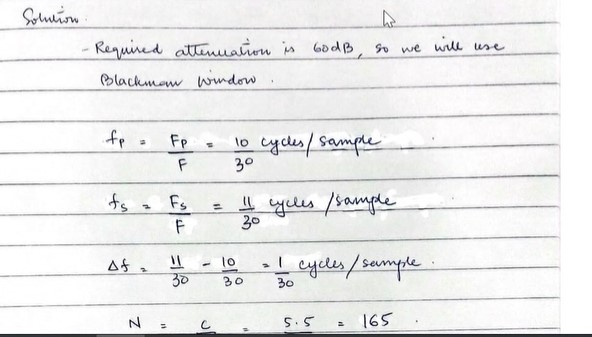 Solution.
- Required attenuation is 60dB, so we will use
Blackman window.
fp = Fp/F = 10/30 cycles/sample
fs = Fs/F = 11/30 cycles/sample
Δf = 11/30 - 10/30 = 1/30 cycles/sample.
N = C = 5.5 = 165.